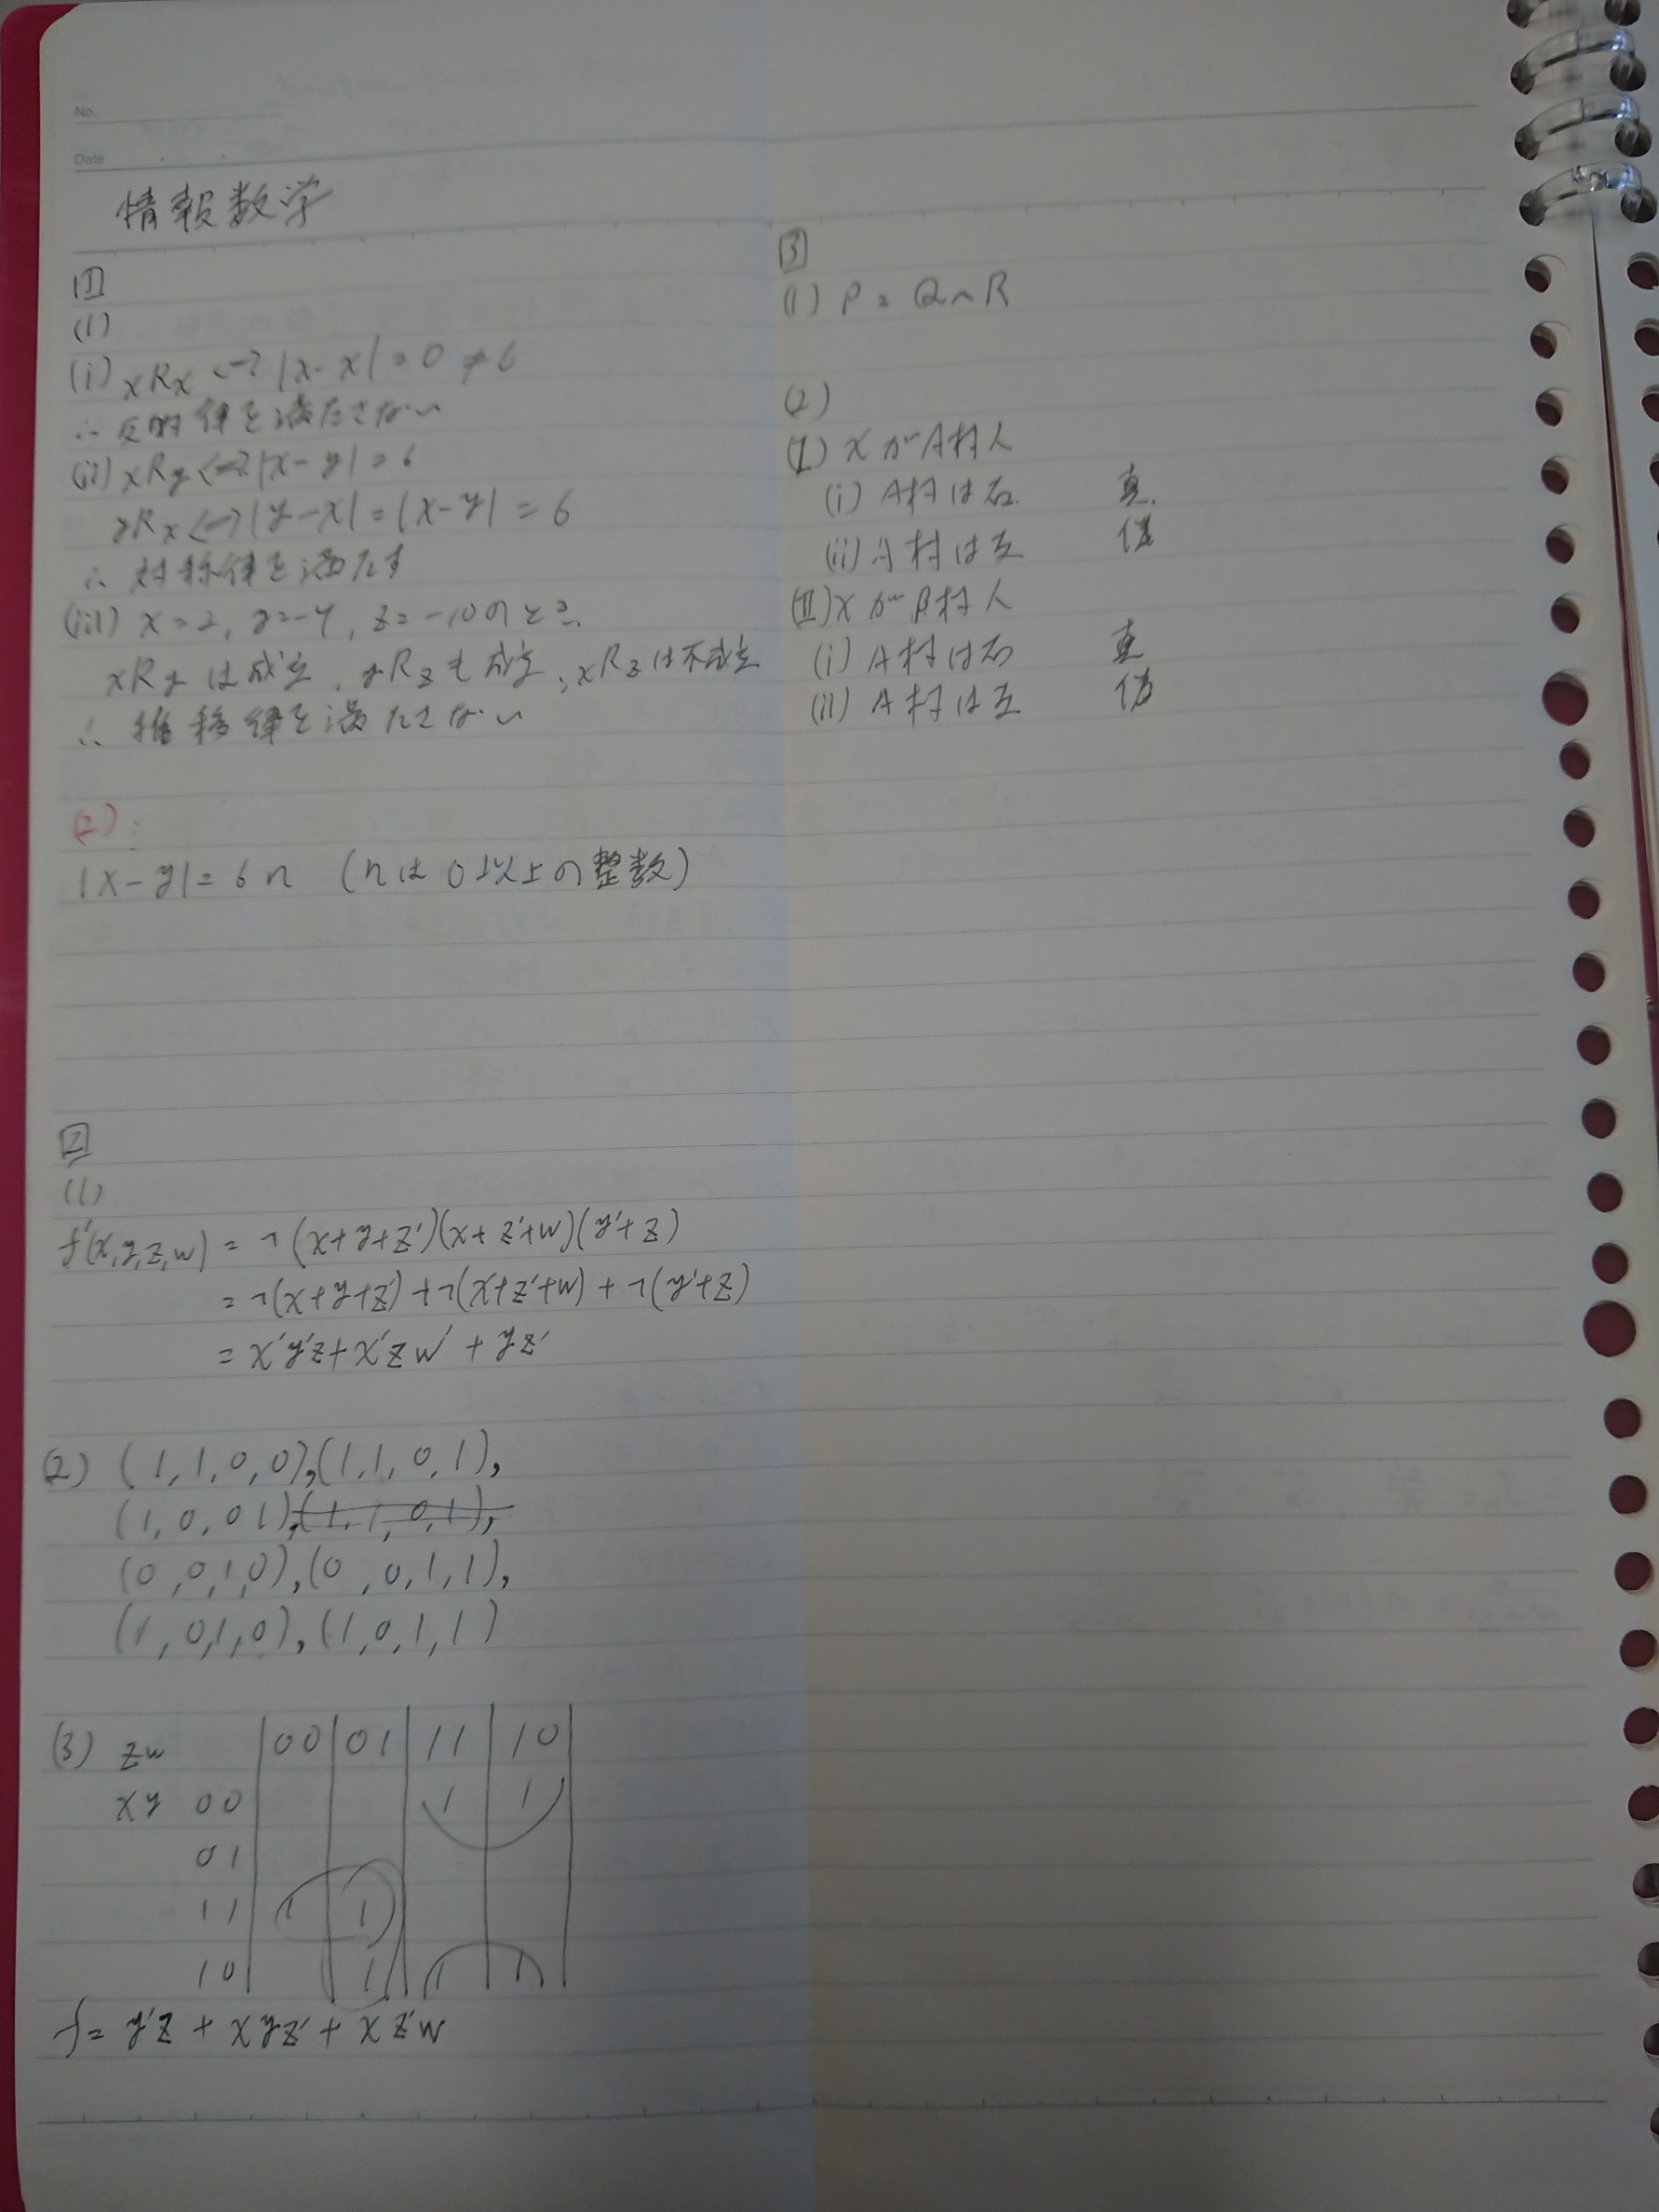 No.
Date
情報数学
1
(1)
(i) xRx ⟷ |x-x| = 0 ≠ 6
∴ 反射律を満たさない
(ii) xRy ⟷ |x-y| = 6
yRx ⟷ |y-x| = |x-y| = 6
∴ 対称律を満たす
(iii) x=2, y=-4, z=-10のとき、
xRyは成立、yRzも成立、xRzは不成立
∴ 推移律を満たさない
(2):
|x-y| = 6n (nは0以上の整数)
2
(1)
f'(x,y,z,w) = ¬(x+y+z')(x+z'+w)(y'+z)
= ¬(x+y+z')+¬(x+z'+w)+¬(y'+z)
= x'y'z+x'zw'+yz'
(2) (1,1,0,0),(1,1,0,1),
(1,0,01),(1,1,0,1),
(0,0,1,0),(0,0,1,1),
(1,0,1,0),(1,0,1,1)
(3) zw 00 01 11 10
xy 00 1 1
01
11 1 1
10 1 1 1
f= y'z + xyz' + xz'w
3
(1) P = Q∧R
(2)
(I) XがA村人
(i) A村は右 真.
(ii) A村は左 偽
(II) XがB村人
(i) A村は右 真
(ii) A村は左 偽